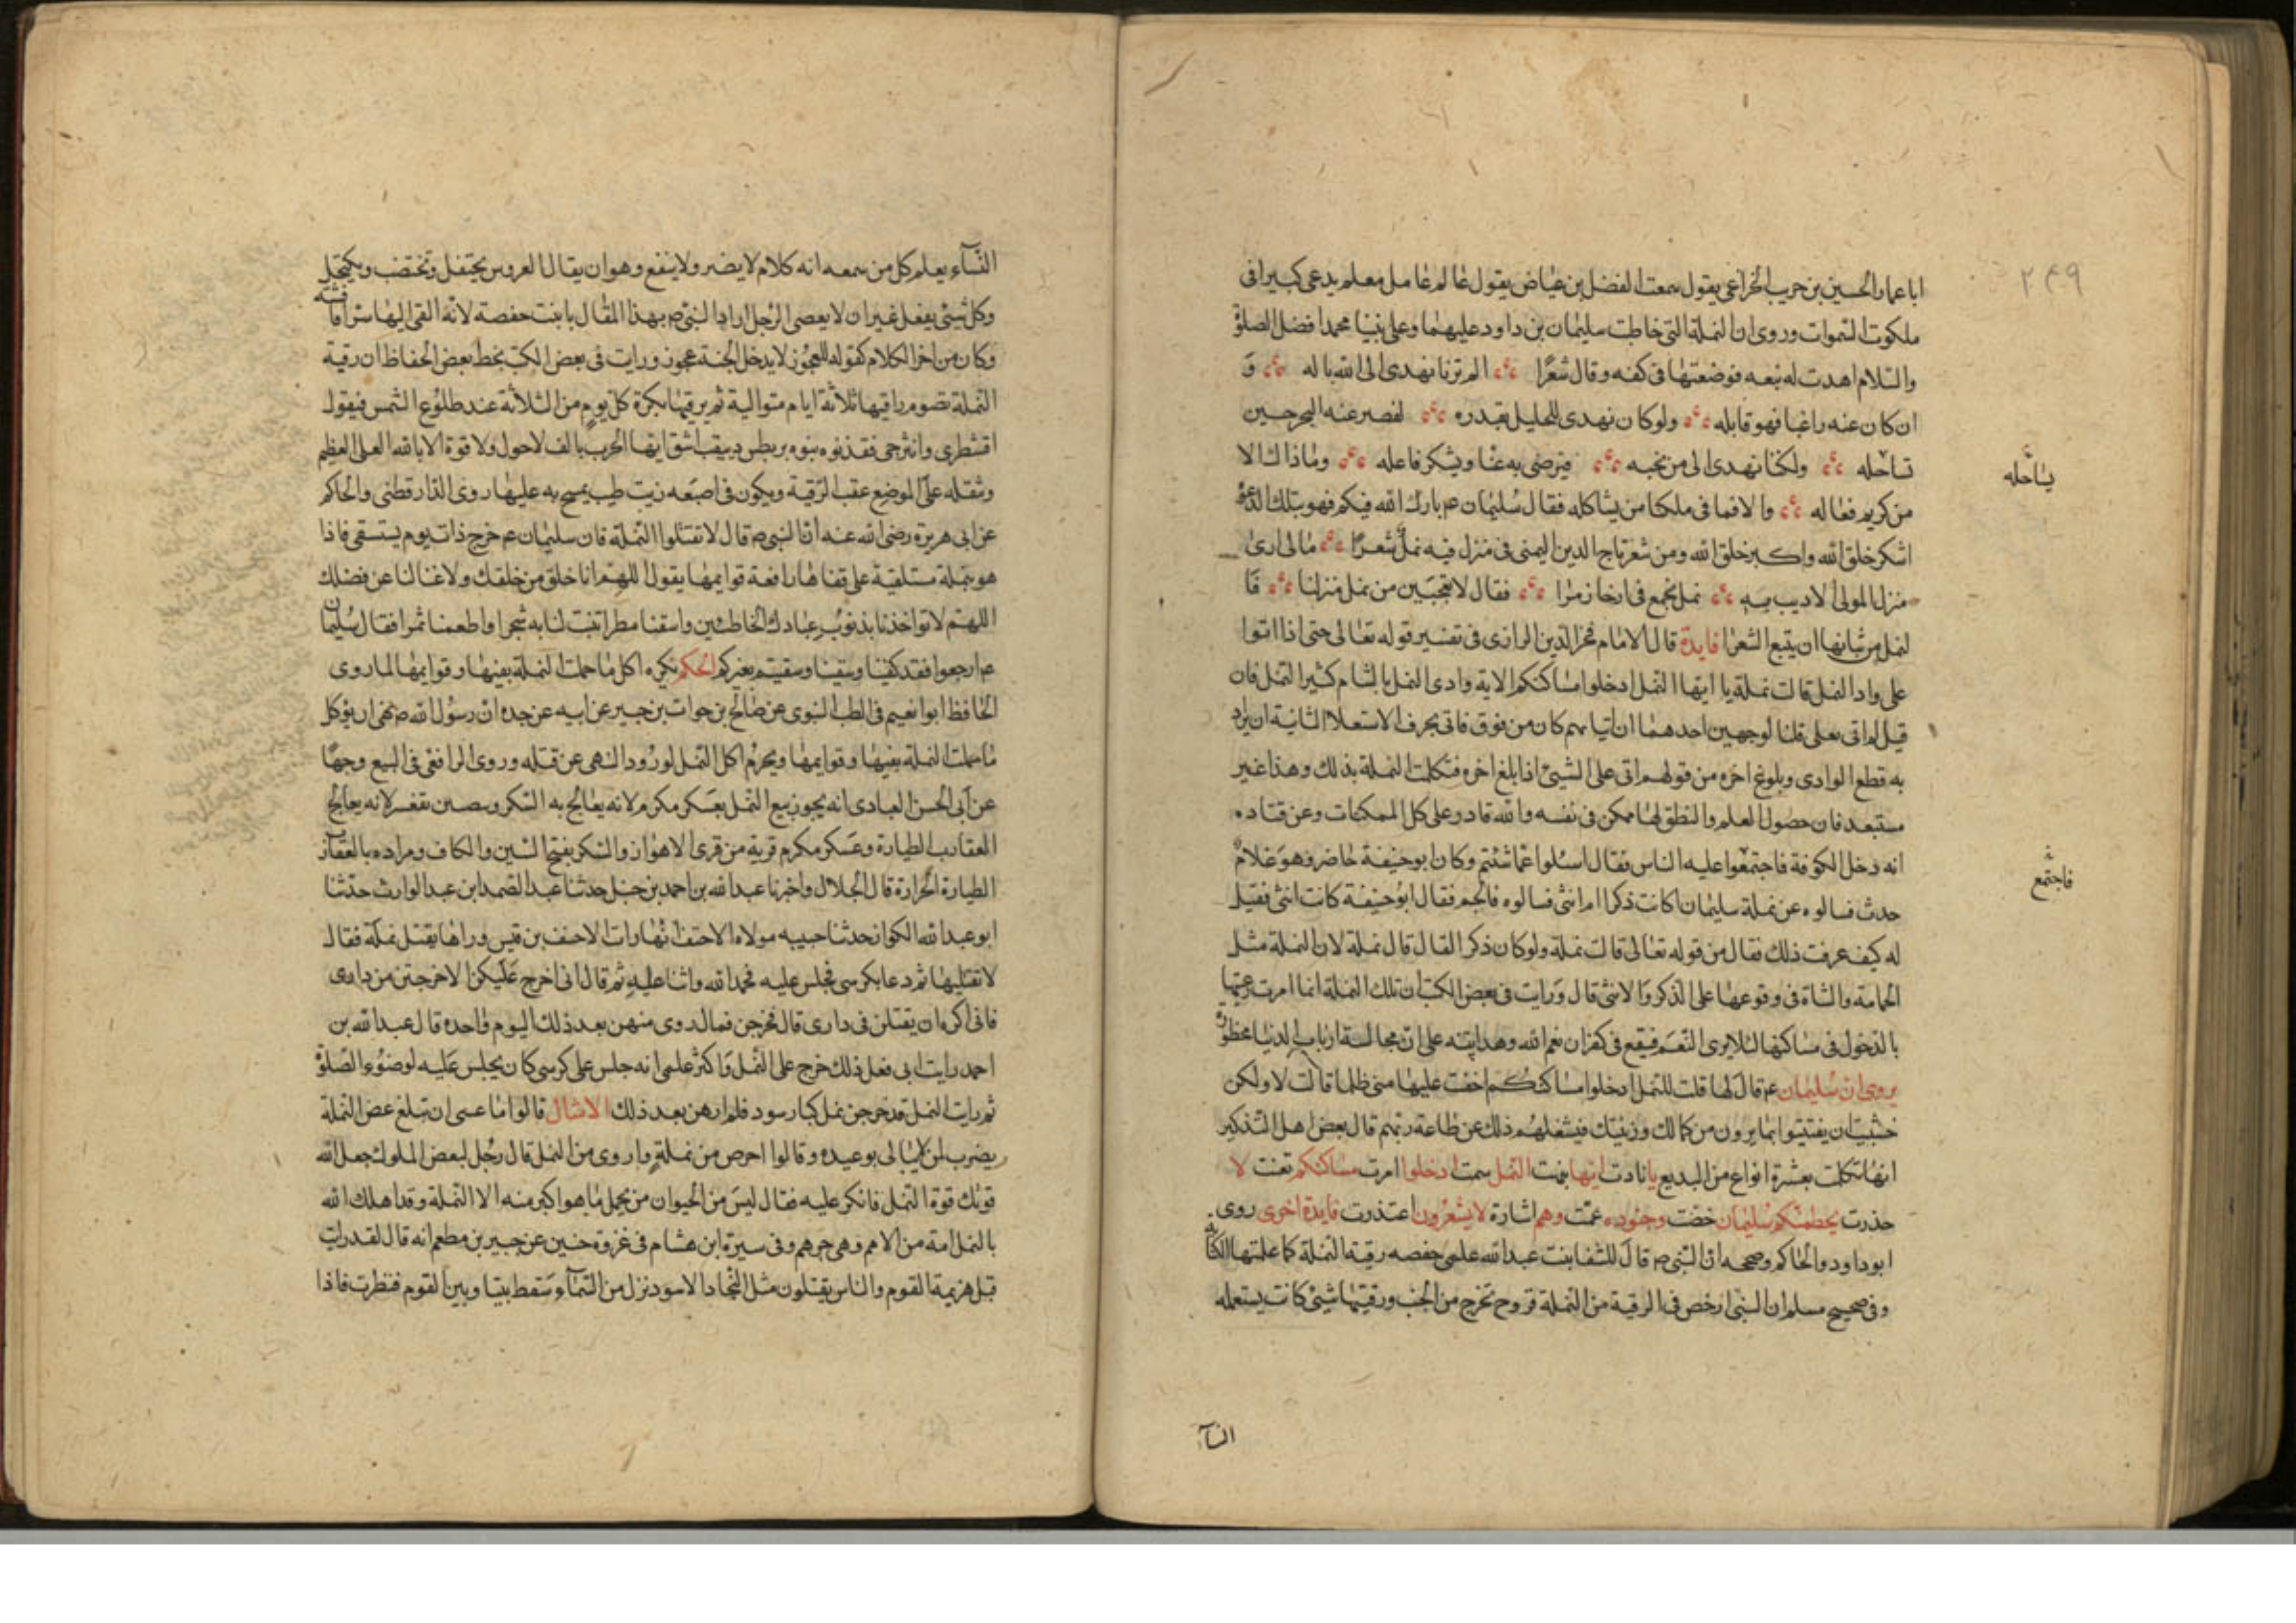 ٢٤٩
ابا عمار الحسين بن حريب الخزاعى يقول سمعت الفضل بن عياض يقول عالم عامل معلم يدعى كبيرا فى
ملكوت السموات وروى ان النملة التى خاطبت سليمان بن داود عليهما وعلى نبينا محمد افضل الصلوة
والسلام اهدت له نبعه فوضعتها فى كفه وقال شعرًا الم ترنا نهدى الى الله ماله وَ
ان كان عنه راغبا فهو قابله ولو كان نهدى للجليل بقدره لقصر عنه البحر حين
تساحله ولكننا نهدى الى من نحبه فيرضى به عنا ويشكر فاعله وما ذاك الا
يساحله
من كريم فعاله والا فما فى ملكنا من يشاكله فقال سليمان عم بارك الله فيكم فهو بتلك الدعوة
اشكر خلق الله واكبر خلق الله ومن شعر تاج الدين اليمنى فى منزل فيه نمل شعرًا ما لى ارى
منزل المولى الاديب به نمل تجمع فى ارخا زمرا فقال لا تعجبين من نمل منزلنا فَا
لنمل من شانها ان يتبع الشعرا فايدة قال الامام فخر الدين الرازى فى تفسير قوله تعالى حتى اذا اتوا
على واد النمل قالت نملة يا ايها النمل ادخلوا مساكنكم الاية وادى النمل بالشام كثير النمل فان
قيل لم اتى بعلى قلنا لوجهين احدهما ان اتيانهم كان من فوق فاتى بحرف الاستعلا الثانية ان يراد
به قطع الوادى وبلوغ اخره من قولهم اتى على الشيئ اذا بلغ اخره فتكلمت النملة بذلك وهذا غير
مستبعد فان حصول العلم والنطق لها ممكن فى نفسه والله قادر على كل الممكنات وعن قتاده
انه دخل الكوفة فاجتمعوا عليه الناس فقال اسئلوا عما شئتم وكان ابو حنيفة حاضر وهو غلام
فاجتمع
حدث فسالوه عن نملة سليمان اكانت ذكرا ام انثى فسالوه فالجم فقال ابو حنيفة كانت انثى فقيل
له كيف عرفت ذلك فقال من قوله تعالى قالت نملة ولو كان ذكرا لقال قال نملة لان النملة مثل
الحمامة والشاة فى وقوعها على الذكر والانثى قال ورايت فى بعض الكتب ان تلك النملة انما امرت رعيتها
بالدخول فى مساكنها لئلا يرى النعم فيقع فى كفران نعم الله وهدايته على ان مجالسة ارباب الدنيا محظورة
يروى ان سليمان عم قال لها قلت للنمل ادخلوا مساكنكم اخفت عليها منى ظلما قالت لا ولكن
خشيت ان يفتتنوا بما يرون من كمالك وزينتك فيشغلهم ذلك عن طاعة ربهم قال بعض اهل التذكير
انها تكلمت بعشرة انواع من البديع يا نادت ايها نبهت النمل سمت ادخلوا امرت مساكنكم نعتت لا
حذرت يحطمنكم سليمان خصت وجنوده عمت وهم اشارة لا يشعرون اعتذرت فايدة اخرى روى
ابو داود والحاكم وصححه ان النبى م قال للشفا بنت عبد الله علمى حفصه رقية النملة كما علمتها الكتابة
وفى صحيح مسلم ان النبى ارخص فى الرقية من النملة قروح تخرج من الجنب ورقيتها شيئ كانت يستعمله
النسآ
النسآء يعلم كل من سمعه انه كلام لا يضر ولا ينفع وهو ان يقال العروس يحتفل وتختضب ويكتحل
وكل شيئ يفعل غير ان لا يعصى الرجل اراد النبى م بهذا المقال بابنت حفصة لانه القى اليها سرا فافشته
وكان من اخر الكلام كقوله للعجوز لا يدخل الجنة عجوز ورايت فى بعض الكتب بخط بعض الحفاظ ان رقية
النملة تصوم راقيها ثلاثة ايام متوالية ثم يرقيها بكرة كل يوم من الثلاثة عند طلوع الشمس فيقول
اقشطرى وانترحى فقد نوه بنوه بربطس ديبقب اشق ايها الجرب بالف لا حول ولا قوة الا بالله العلى العظيم
وتتفله على الموضع عقب الرقية ويكون فى اصبعه زيت طيب يمسح به عليها روى الدارقطنى والحاكم
عن ابى هريرة رضى الله عنه ان النبى م قال لا تقتلوا النملة فان سليمان عم خرج ذات يوم يستسقى فاذا
هو بنملة مستلقية على قفاها رافعة قوايمها يقول اللهم انا خلق من خلقك ولا غنا لنا عن فضلك
اللهم لا تواخذنا بذنوب عبادك الخاطئين واسقنا مطرا تنبت لنا به شجرا واطعمنا ثمرا فقال سليمان
عم ارجعوا فقد كفينا وسقينا وسقيتم بغيركم الحكم يكره اكل ما حملت النملة بفيها وقوايمها لما روى
الحافظ ابو نعيم فى الطب النبوى عن صالح بن خوات بن جبير عن ابيه عن جده ان رسول الله م نهى ان يؤكل
ما حملت النملة بفيها وقوايمها ويحرم اكل النمل لورود النهى عن قتله وروى الرافعى فى البيع وجها
عن ابى الحسن العبادى انه يجوز بيع النمل بعسكر مكرم لانه يعالج به السكر وبنصيبين لانه يعالج
العقارب الطيارة وعسكر مكرم قرية من قرى الاهواز والسكر بفتح السين والكاف ومراده بالعقارب
الطيارة الجرارة قال الخلال واخبرنا عبد الله بن احمد بن حنبل حدثنا عبد الصمد ابن عبد الوارث حدثنا
ابو عبد الله الكواز حدثنا حبيبه مولاة الاحنف انها رات الاحنف بن قيس وراها يقتل نملة فقال
لا تقتليها ثم دعا بكرسى فجلس عليه فحمد الله واثنا عليه ثم قال انى احرج عليكن الا خرجتن من دارى
فانى اكره ان يقتلن فى دارى قال فخرجن فما لروى منهن بعد ذلك اليوم واحده قال عبد الله بن
احمد رايت ابى فعل ذلك خرج على النمل واكثر علمى انه جلس على كرسى كان يجلس عليه لوضوء الصلوة
ثم رايت النمل قد خرجن نمل كبار سود فلم ارهن بعد ذلك الامثال قالوا ما عسى ان تبلغ عض النملة
يضرب لمن لا يبالى بوعيده وقالوا احرص من نملة واروى من النمل قال رجل لبعض الملوك جعل الله
قوتك قوة النمل فانكر عليه فقال ليس من الحيوان من يحمل ما هو اكبر منه الا النملة وقد اهلك الله
بالنمل امة من الامم وهى جرهم وفى سيرة ابن هشام فى غزوة حنين عن جبير بن مطعم انه قال لقد رايت
قبل هزيمة القوم والناس يقتلون مثل البجاد الاسود نزل من السمآء سقط بيننا وبين القوم فنظرت فاذا